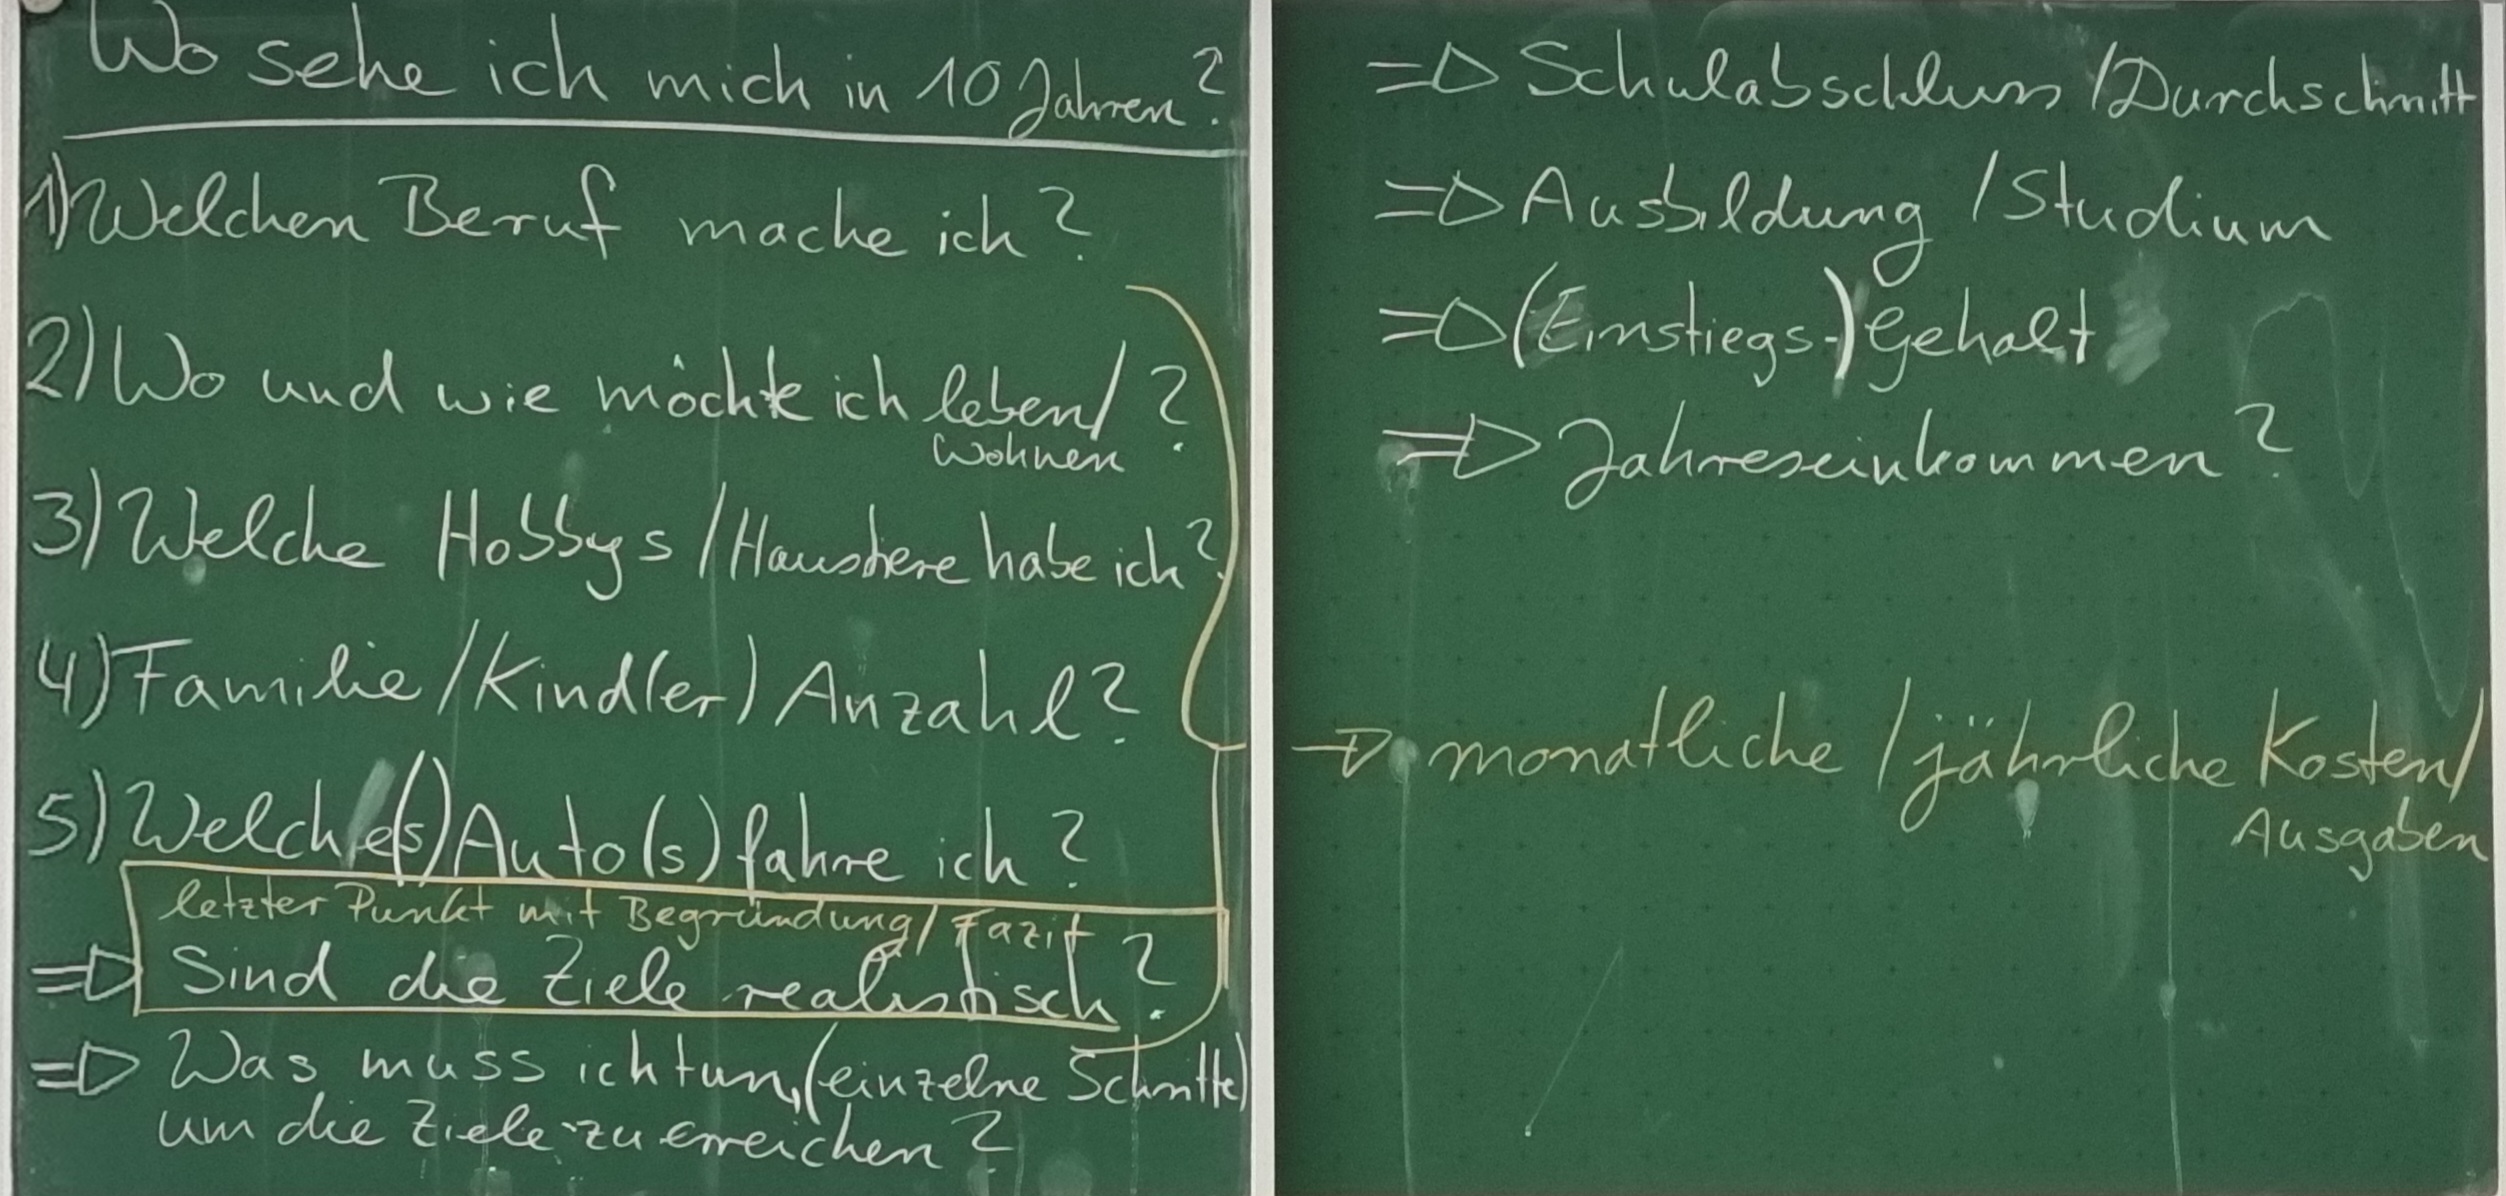 Wo sehe ich mich in 10 Jahren?
1) Welchen Beruf mache ich?
2) Wo und wie möchte ich leben/ ?
wohnen
3) Welche Hobbys / Haustiere habe ich?
4) Familie / Kind(er) Anzahl?
5) Welche(s) Auto(s) fahre ich?
letzter Punkt mit Begründung / Fazit
=> Sind die Ziele realistisch?
=> Was muss ich tun, (einzelne Schritte)
um die Ziele zu erreichen?
=> Schulabschluss / Durchschnitt
=> Ausbildung / Studium
=> (Einstiegs-) Gehalt
=> Jahreseinkommen?
-> monatliche / jährliche Kosten/
Ausgaben